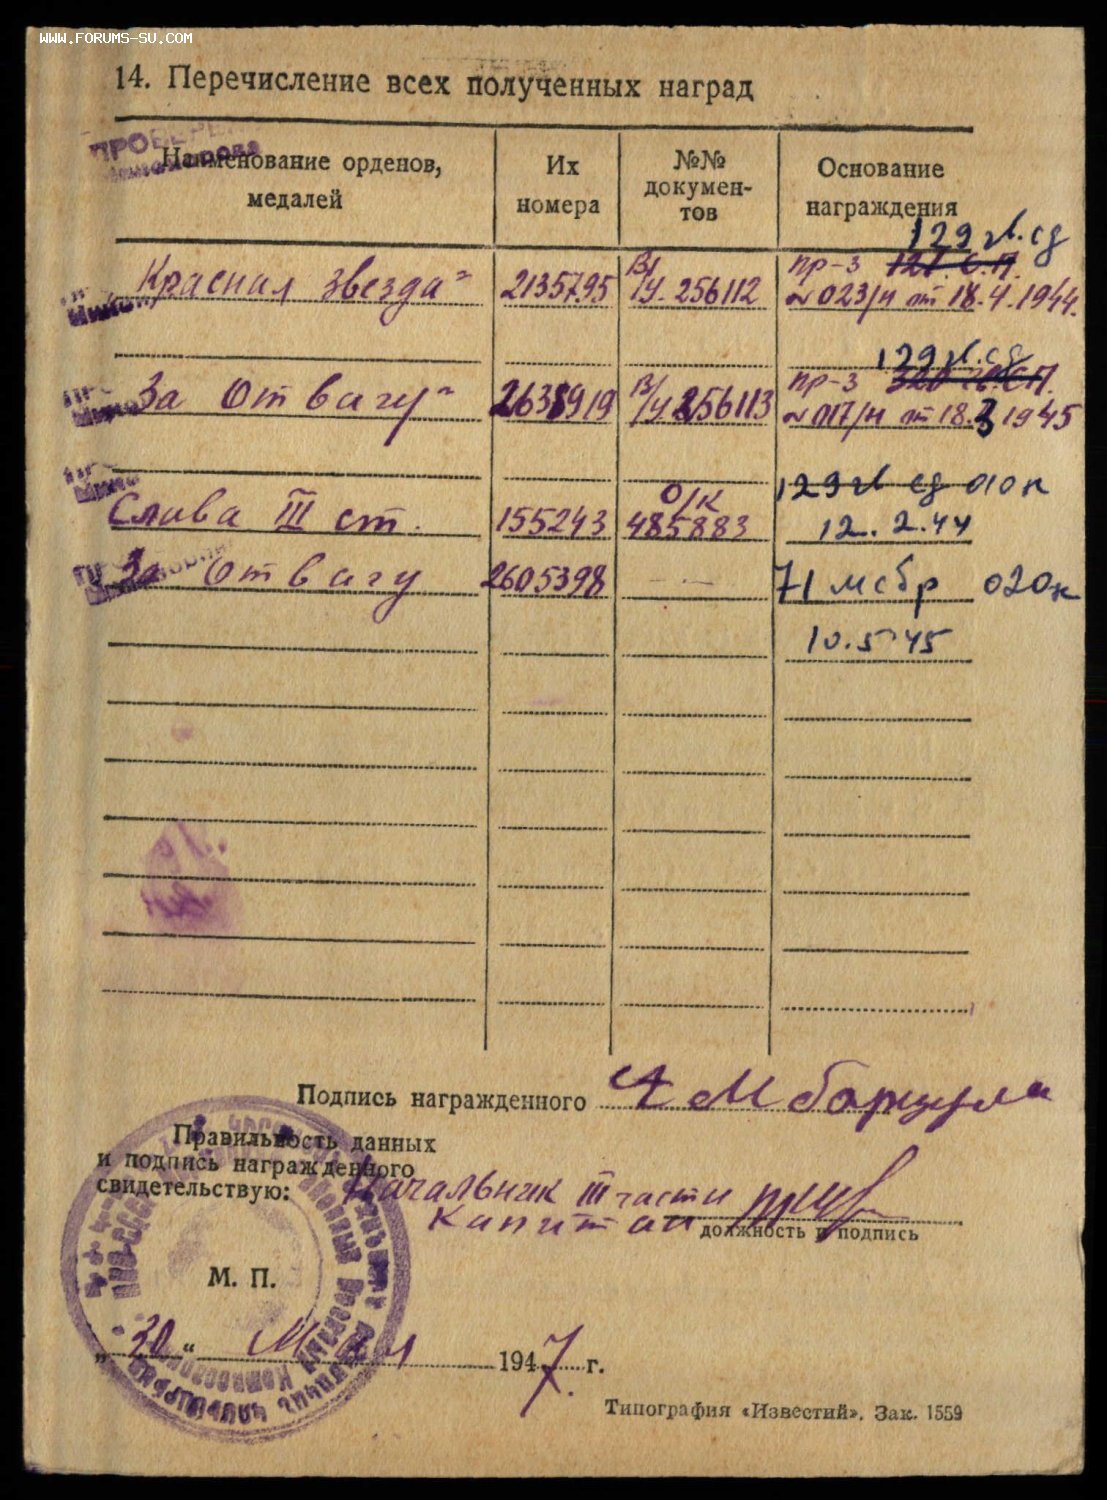 WWW.FORUMS-SU.COM
14. Перечисление всех полученных наград
ПРОВЕРЕНО
Наименование орденов, медалей
Их номера
№№ докумен-тов
Основание награждения
129 гв. сд
Красная звезда"
2135795
В/У. 256112
пр-з 121 С.П.
~ 023/н от 18.4.1944.
129 гв. сд
За Отвагу"
2638919
В/У 256113
пр-з 320 С.П.
~ 017/н от 18.3 1945
Слава III ст.
155243
О/К 485883
129 гв сд 010н
12. 2. 44
За Отвагу
2605398
— —
71 мсбр 020н
10.5.45
Подпись награжденного
Правильность данных
и подпись награжденного
свидетельствую:
Начальник III части
Капитан
должность и подпись
М. П.
„30“ Мая 1947 г.
Типография «Известий». Зак. 1559